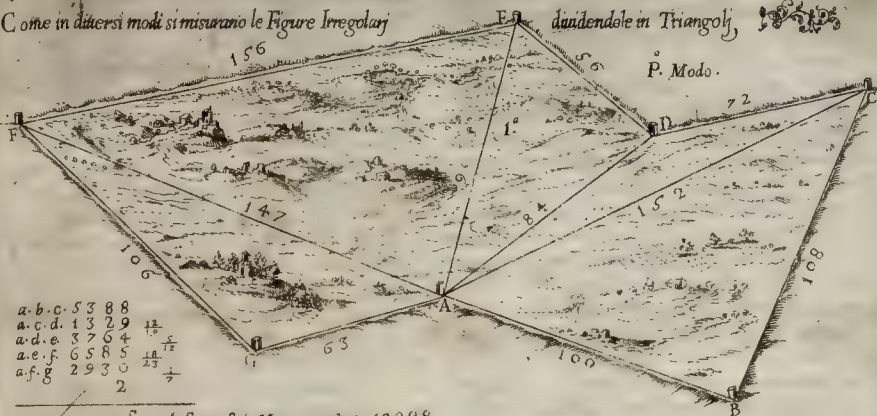 Come in diuersi modi si misurano le Figure Irregolarj diuidendole in Triangolj,
P. Modo.
E
156
56
72
C
F
D
1.
9
147
84
152
106
108
A
G
63
100
B
a.b.c. 5388
a.c.d. 1329 12/10
a.d.e. 3764 5/12
a.e.f. 6585 18/23
a.f.g 2930 1/7
2